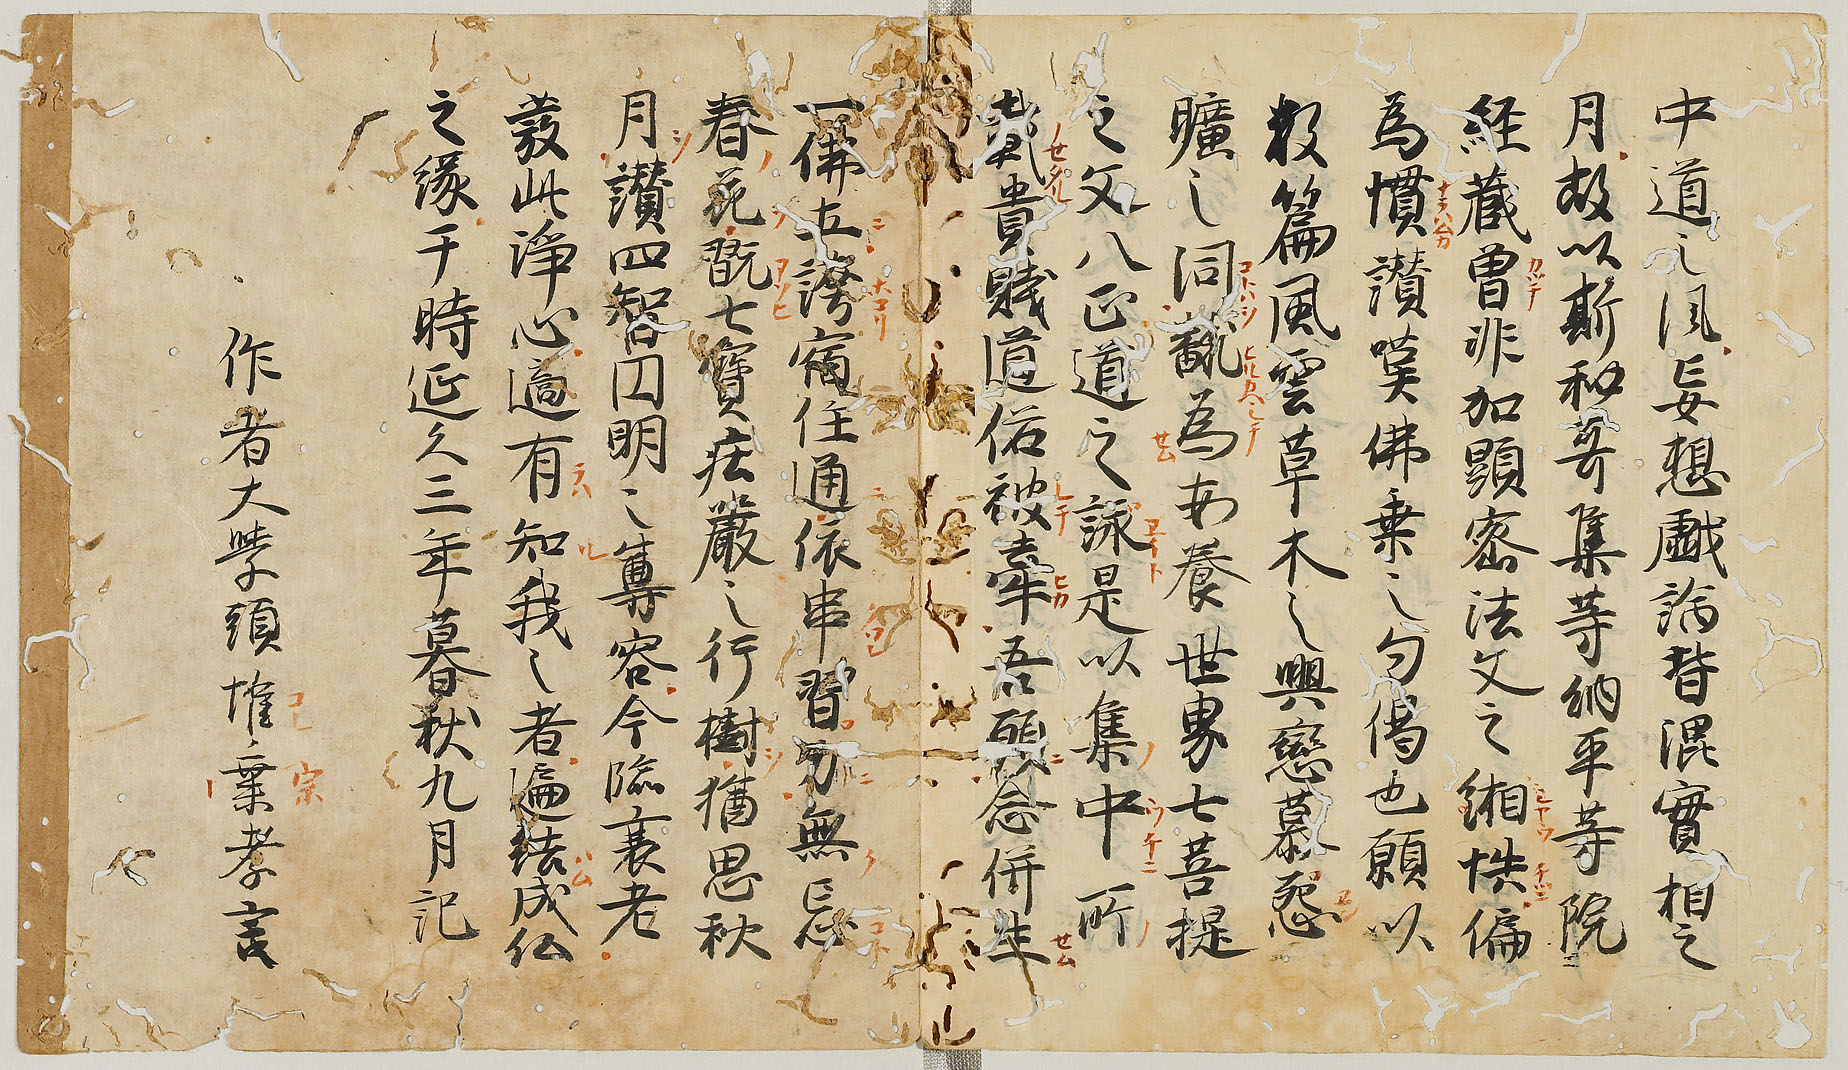 中道之風妄想戯論昔混實相之
月故以斯和哥集等納平等院
経蔵曽非加顕密法文之緗帙偏
為慣讃嘆佛乗之句偈也願以
数篇風雲草木之興恋慕怨
曠之詞翻為安養世界七菩提
之文八正道之詠是以集中所
載貴賤道俗被牽吾願念併生
一佛土誇宿住通依串習力無忘
春花翫七寳荘嚴之行樹猶思秋
月讃四智円明之尊容今臨衰老
發此浄心適有知我之者遍結成仏
之縁于時延久三年暮秋九月記
作者大学頭惟棄孝言